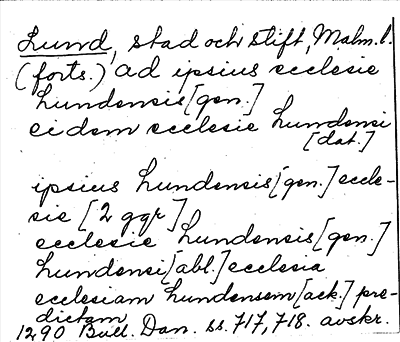 Lund, stad och stift, Malm.l.
(forts.) ad ipsius ecclesie
Lundensis [gen.]
eidem ecclesie Lundensi
[dat.]
ipsius Lundensis [gen.] eccle-
sie [2 ggr]
ecclesie Lundensis [gen.]
Lundensi [abl.] ecclesia
ecclesiam Lundensem [ack.] pre-
dictam
1290 Bull. Dan. ss. 717, 718. avskr.